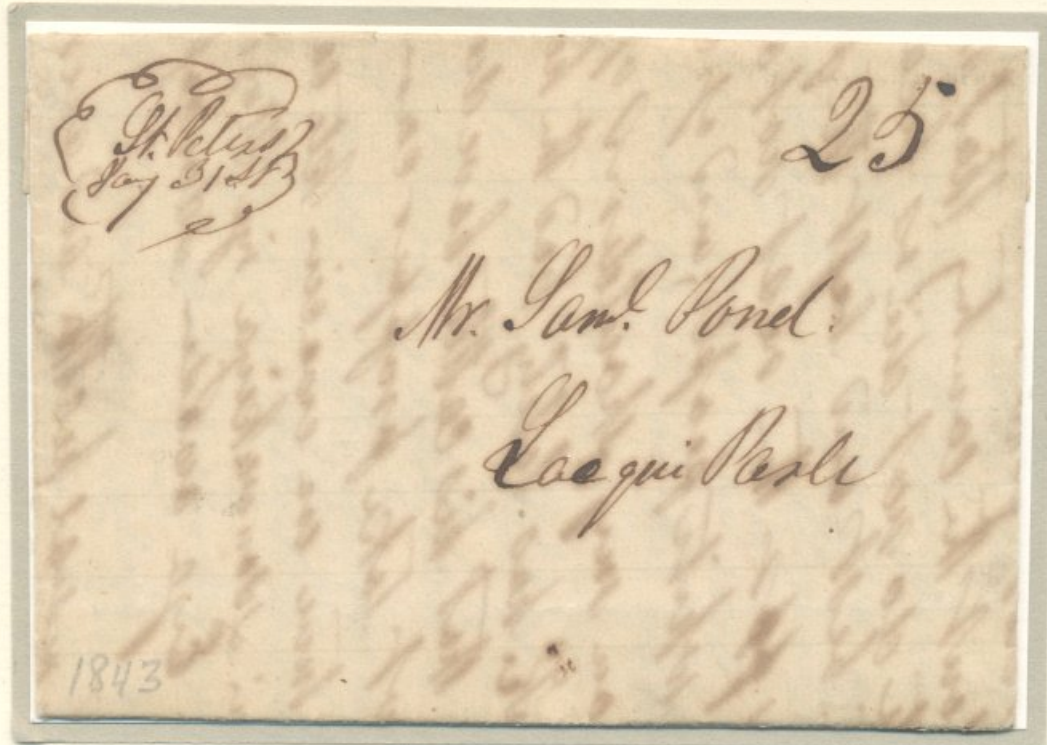 St. Peters
May 31st
25
Mr. Saml. Pond.
Lac qui Parle
1843